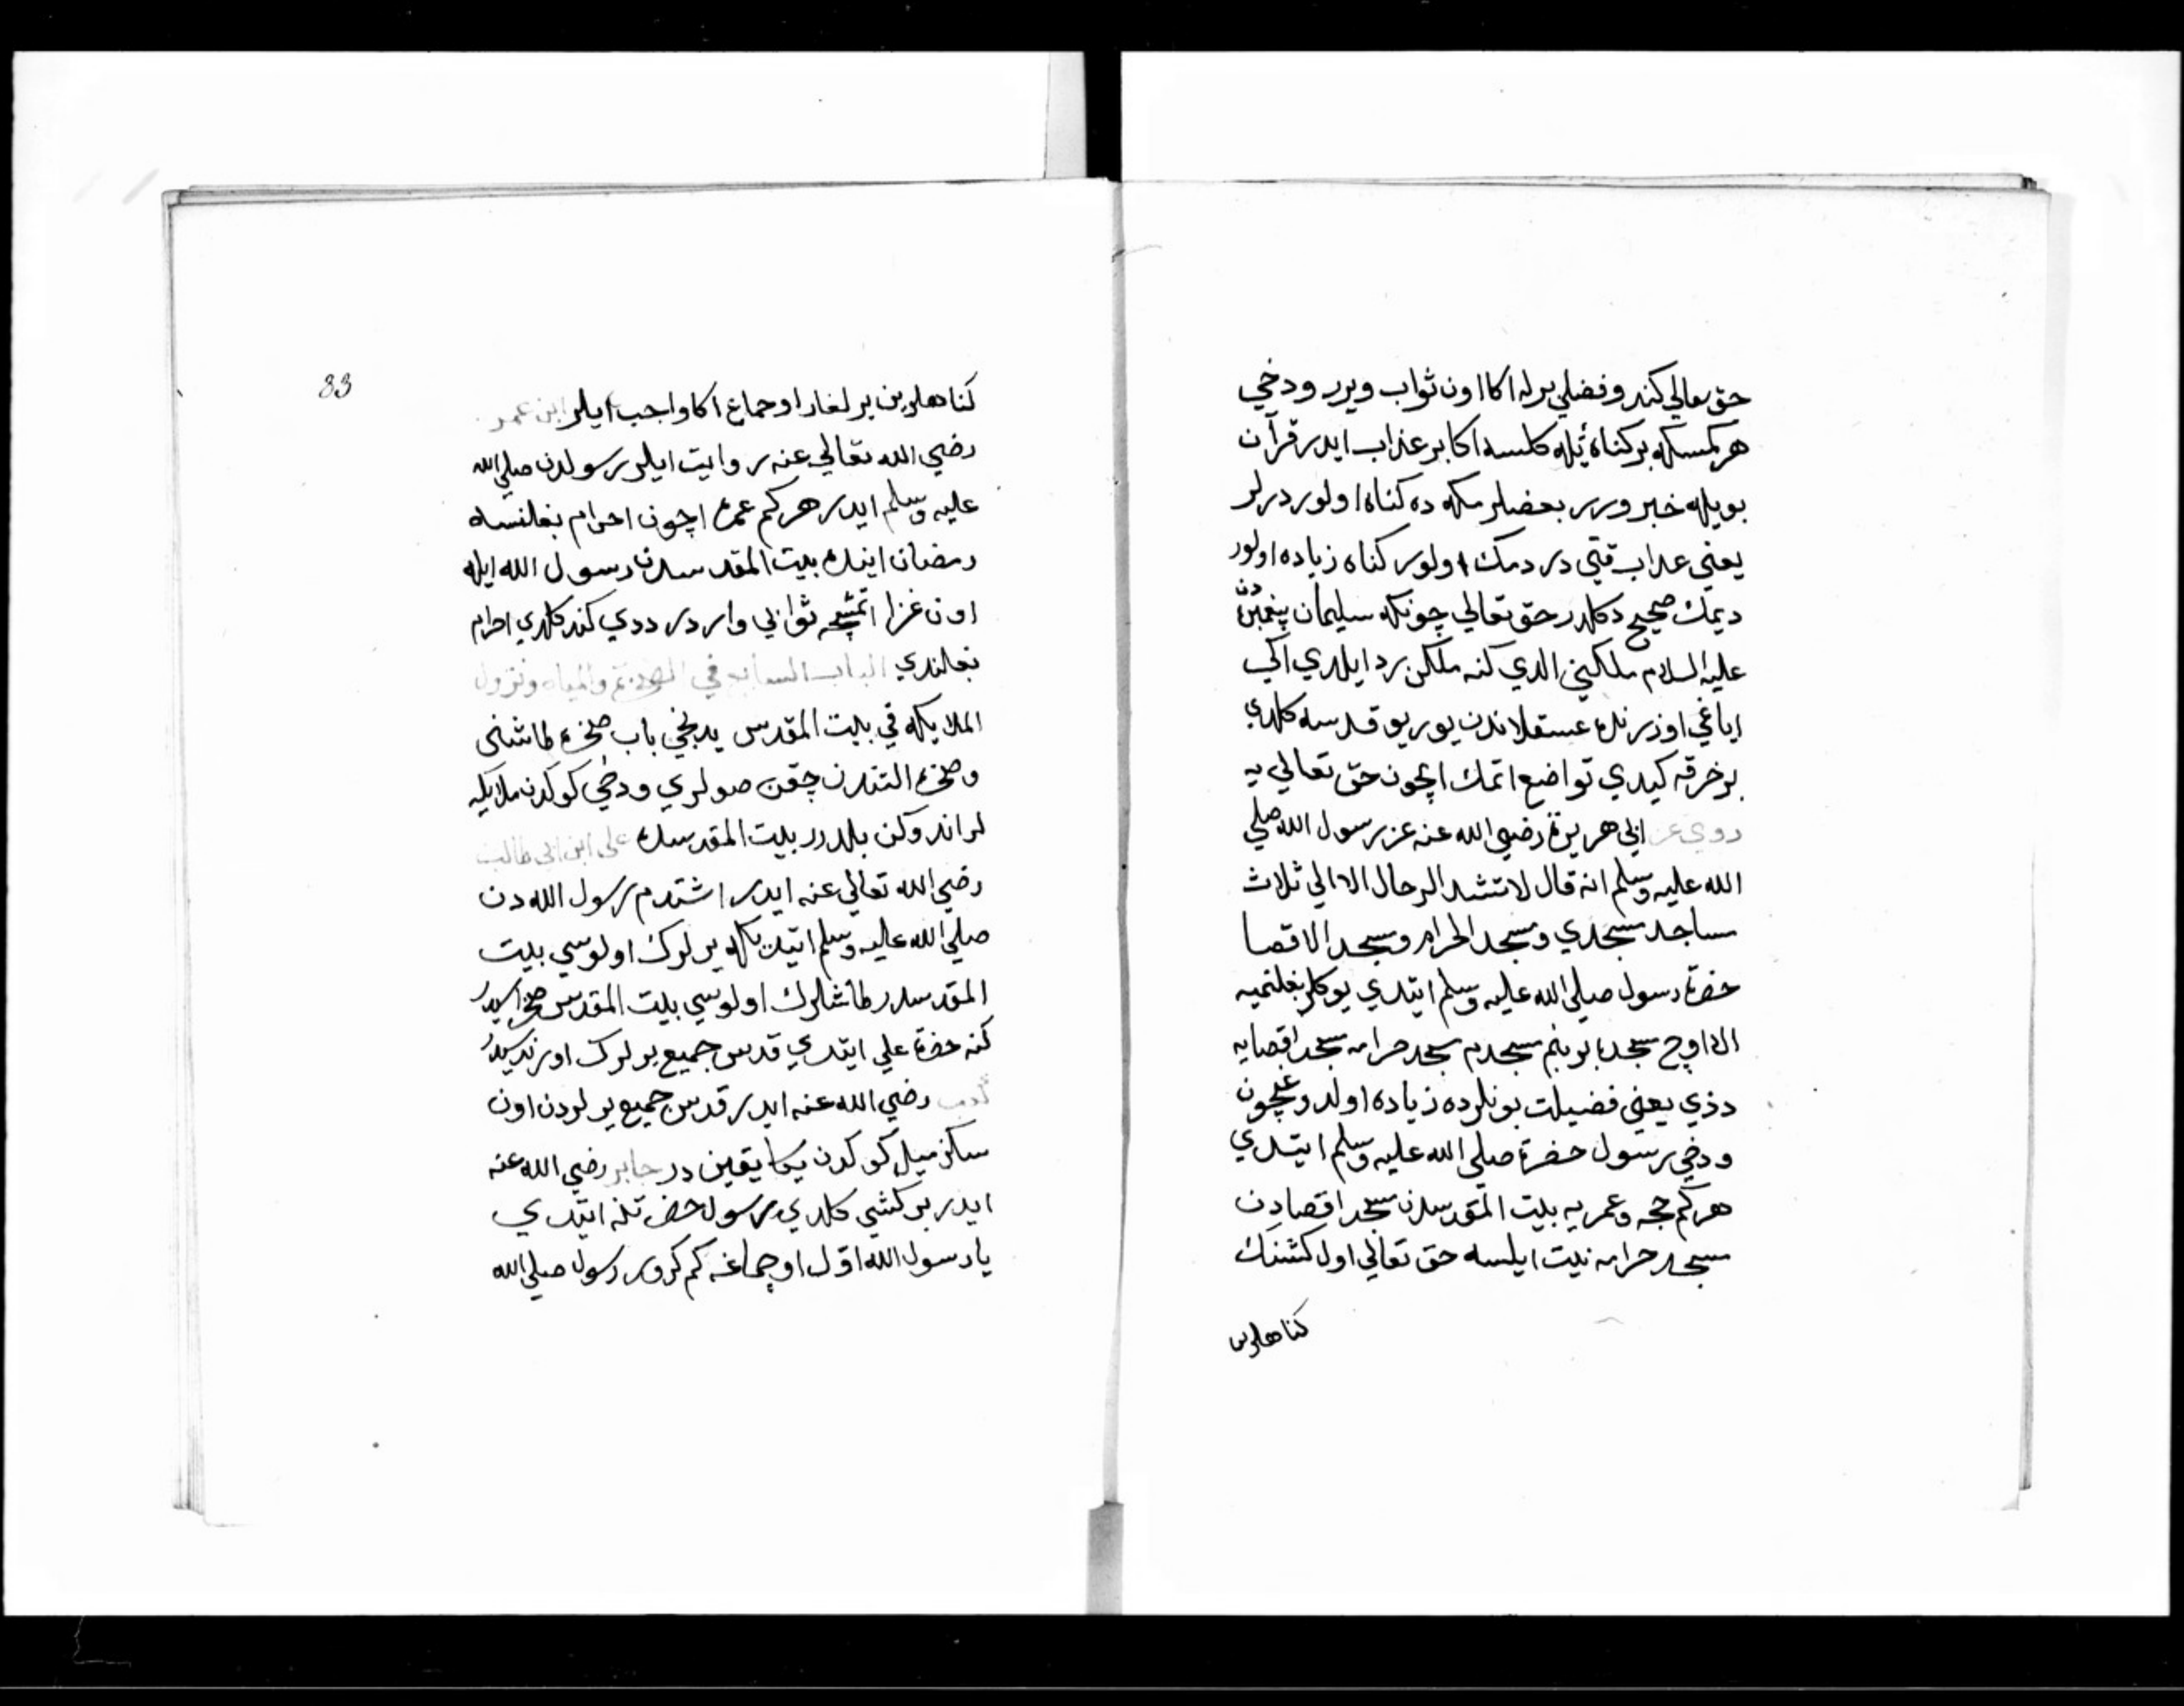 حق تعالي كندو فضلي برله اكا اون ثواب ويرر ودخي
هر كمسكه بر كناه ئيله كلسه اكا بر عذاب ايدر قرآن
بويله خبر ورر بعضلر مكه ده كناه اولور درلر
يعني عذاب قتي در دمك اولور كناه زياده اولور
ديمك صحيح دكلدر حق تعالي چونكه سليمان پيغمبردن
عليه السلام ملكيني الدي كنه ملكن رد ايلدي اكي
اياغي اوزرنده عسقلاندن يوريو قدسه كلدي
بر خرقه كيدي تواضع اتمك ايچون حق تعالي يه
روي عن ابي هريرة رضي الله عنه عن رسول الله صلي
الله عليه وسلم انه قال لا تشد الرحال الا الي ثلاث
مساجد مسجدي ومسجد الحرام ومسجد الاقصا
حضرة رسول صلي الله عليه وسلم ايتدي يوكلر بغلنميه
الا اوچ مسجده بو بنم مسجدم مسجد حرامه مسجد اقصايه
دذي يعني فضيلت بونلرده زياده اولدوغيچون
ودخي رسول حضرة صلي الله عليه وسلم ايتدي
هر كم حجه وعمريه بيت المقدسدن مسجد اقصادن
مسجد حرامه نيت ايلسه حق تعالي اول كشنك
كناهلرين
83
كناهلرين يرلغار اوجماغ اكا واجب ايلر ابن عمر
رضي الله تعالي عنه روايت ايلر رسولدن صلي الله
عليه وسلم ايدر هر كم عمره اچون احرام بغلنسه
رمضان اينده بيت المقدسدن رسول الله ايله
اون غزا اتمشچه ثوابي واردر ددي كند كلدي احرام
بغلندي الباب السابع في الصخرة والمياه ونزول
الملايكه في بيت المقدس يدنجي باب صخره طاشنى
وصخره التندن چقن صولري ودخي كوكدن ملايكه
لر اندوكن بلدرر بيت المقدسده علي ابن ابي طالب
رضي الله تعالي عنه ايدر اشتدم رسول الله دن
صلي الله عليه وسلم ايتدي يرلرك اولوسي بيت
المقدسدر طاشلرك اولوسي بيت المقدس صخره سيدر
كنه حضرة علي ايتدي قدس جميع يرلرك اوزنده سيدر
كعب رضي الله عنه ايدر قدس جميع يرلردن اون
سكز ميل كوكدن يكا يقين در جابر رضي الله عنه
ايدر بر كشي كلدي رسول حضرتنه ايتدي
يا رسول الله اوّل اوچماغه كم كرور رسول صلي الله